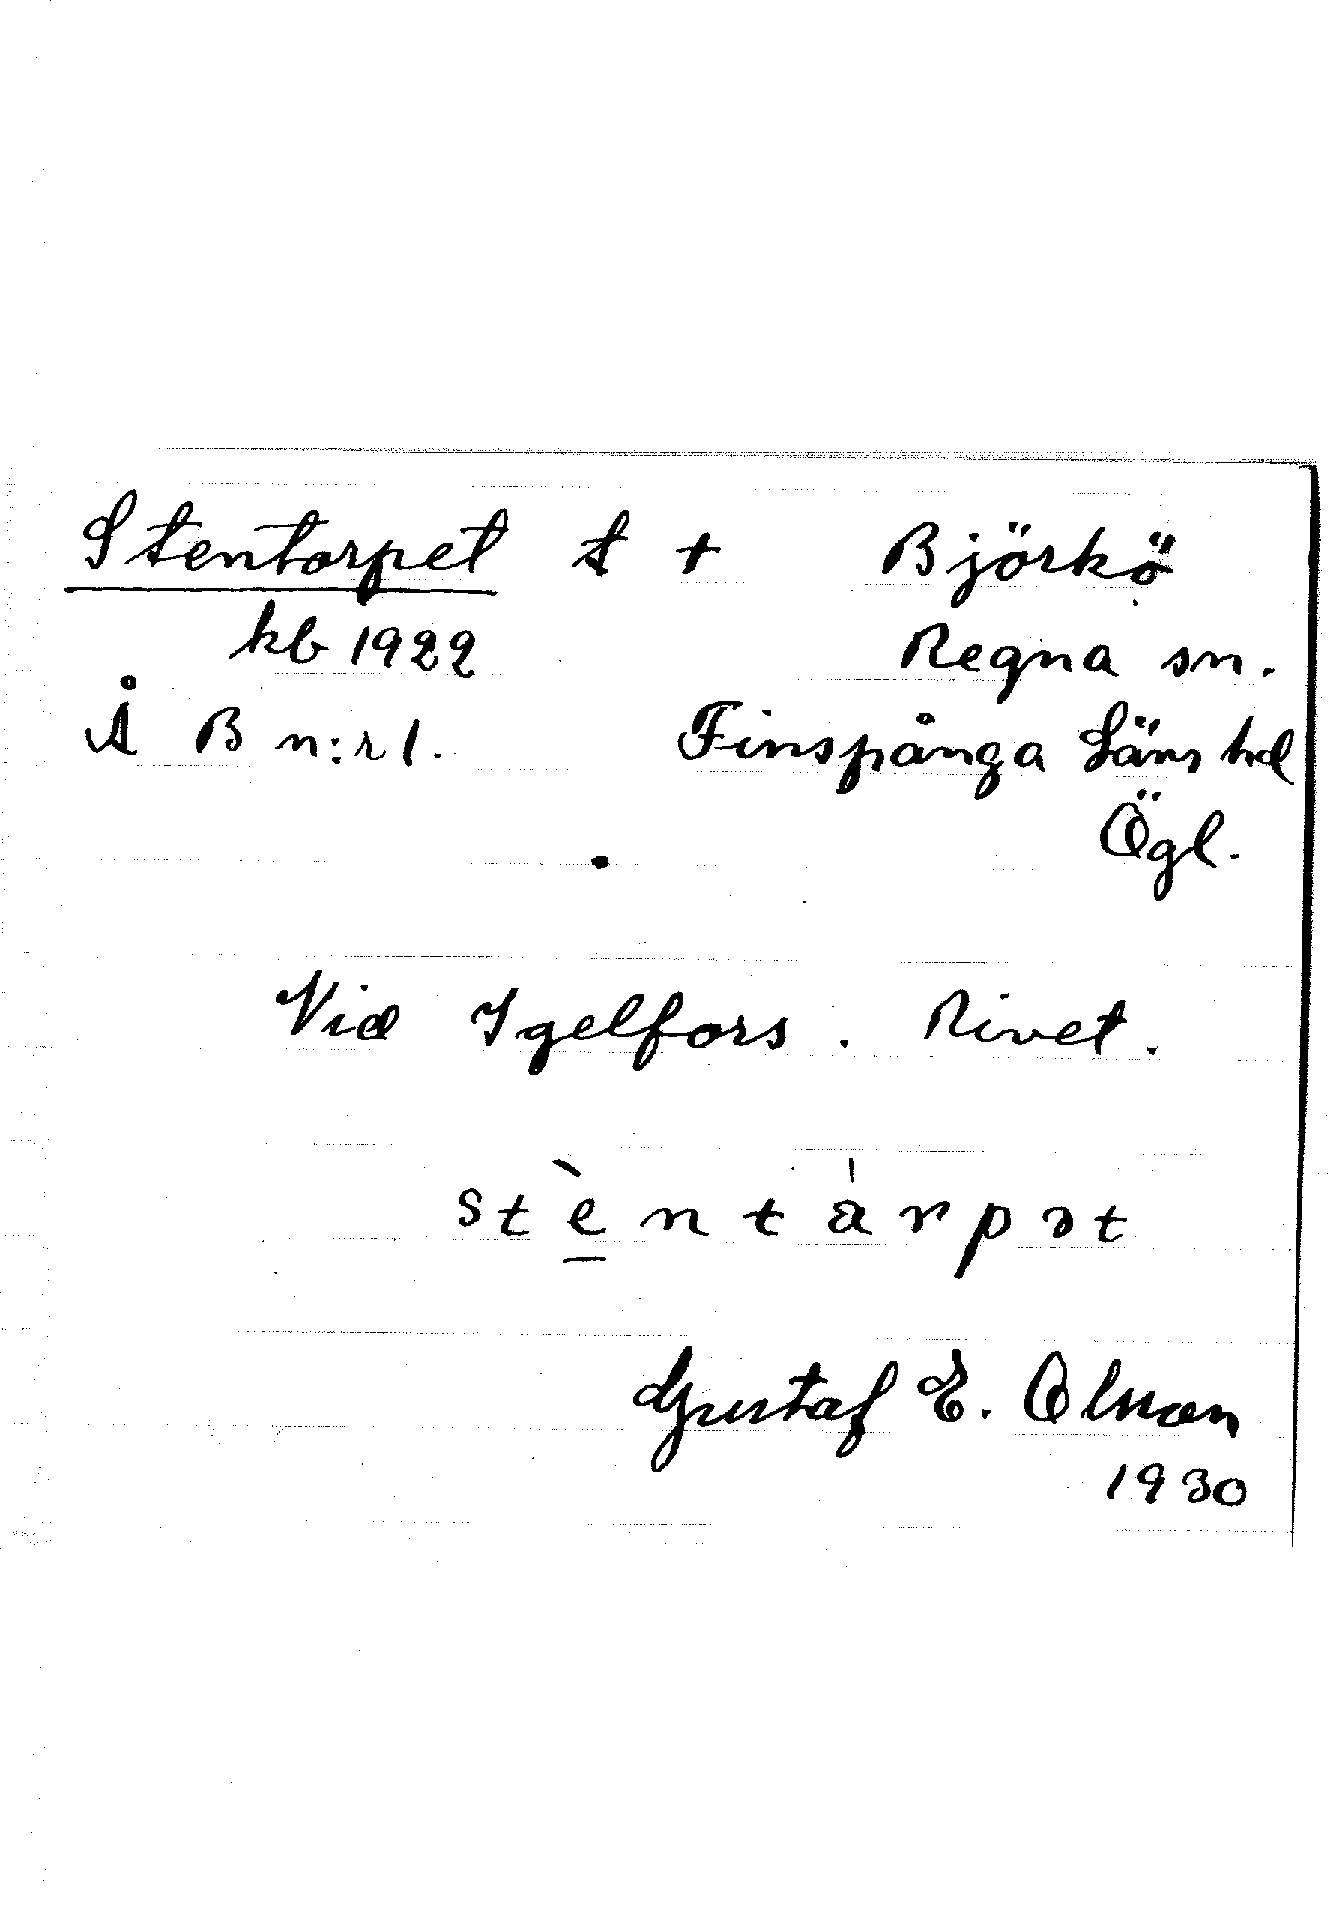 Stentorpet t + Björkö
kb 1922 Regna sn.
Å B n:r 1. Finspånga Läns hd
Ögl.
Vid Igelfors. Rivet.
stèntå̍rpət
Gustaf E. Olsson
1930